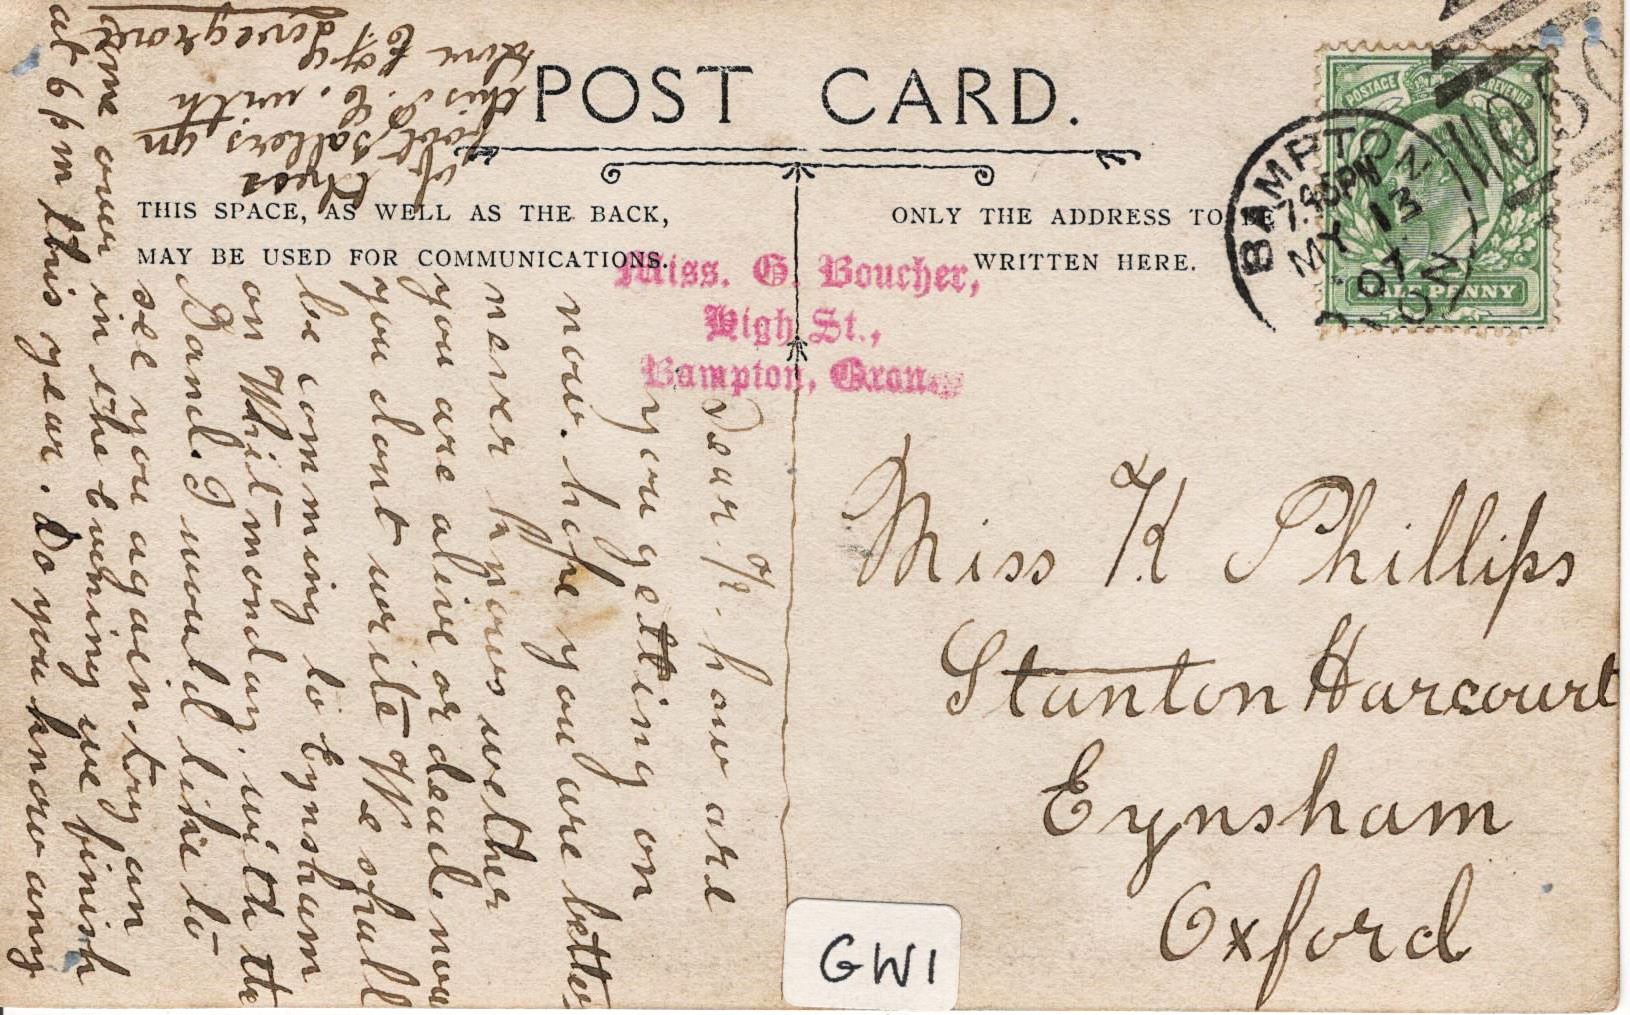 POST CARD.
THIS SPACE, AS WELL AS THE BACK,
MAY BE USED FOR COMMUNICATIONS.
ONLY THE ADDRESS TO BE
WRITTEN HERE.
POSTAGE REVENUE
HALF PENNY
BAMPTON
7.45PM
MY 13
07
OXON
Miss. G. Boucher,
High St.,
Bampton, Oxon.
Miss K Phillips
Stanton Harcourt
Eynsham
Oxford
GW1
Dear K. how are
you getting on
now. hope you are better
never knows wether
you are alive or dead now
you dont write We shall
be comming to Eynsham
on Whitmonday. with the
Band. I would like to
see you again. try an
come over in the evening we finish
at 6 pm this year. Do you know any
of these
footballers on
this P.C. with
love to